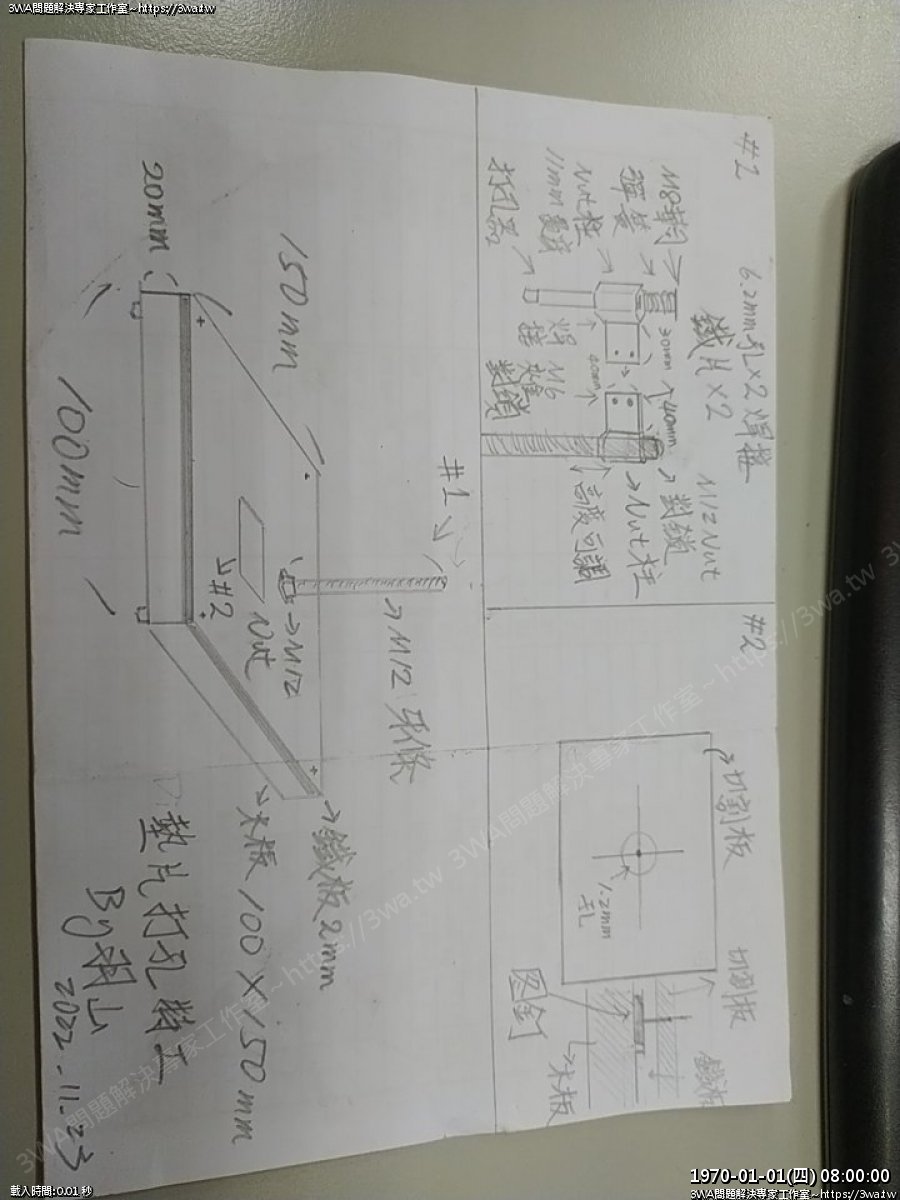 3WA問題解決專家工作室~https://3wa.tw
#1
6.2mm孔x2焊接
鐵片x2
M12 Nut
M8
彈簧
Nut柱
11mm
打孔器
焊接
M6
對鎖
30mm
40mm
對鎖
Nut柱
高度可調
#2
切割板
1.2mm
孔
切割板
鐵板
图釘
木板
20mm
150mm
100mm
#1
M12 牙條
M12
Nut
#2
鐵板2mm
木板 100 X 150mm
墊片打孔
By 羽山
2022.11.23
3WA問題解決專家工作室~https://3wa.tw
3WA問題解決專家工作室~https://3wa.tw
載入時間:0.01 秒
1970-01-01(四) 08:00:00
3WA問題解決專家工作室~https://3wa.tw